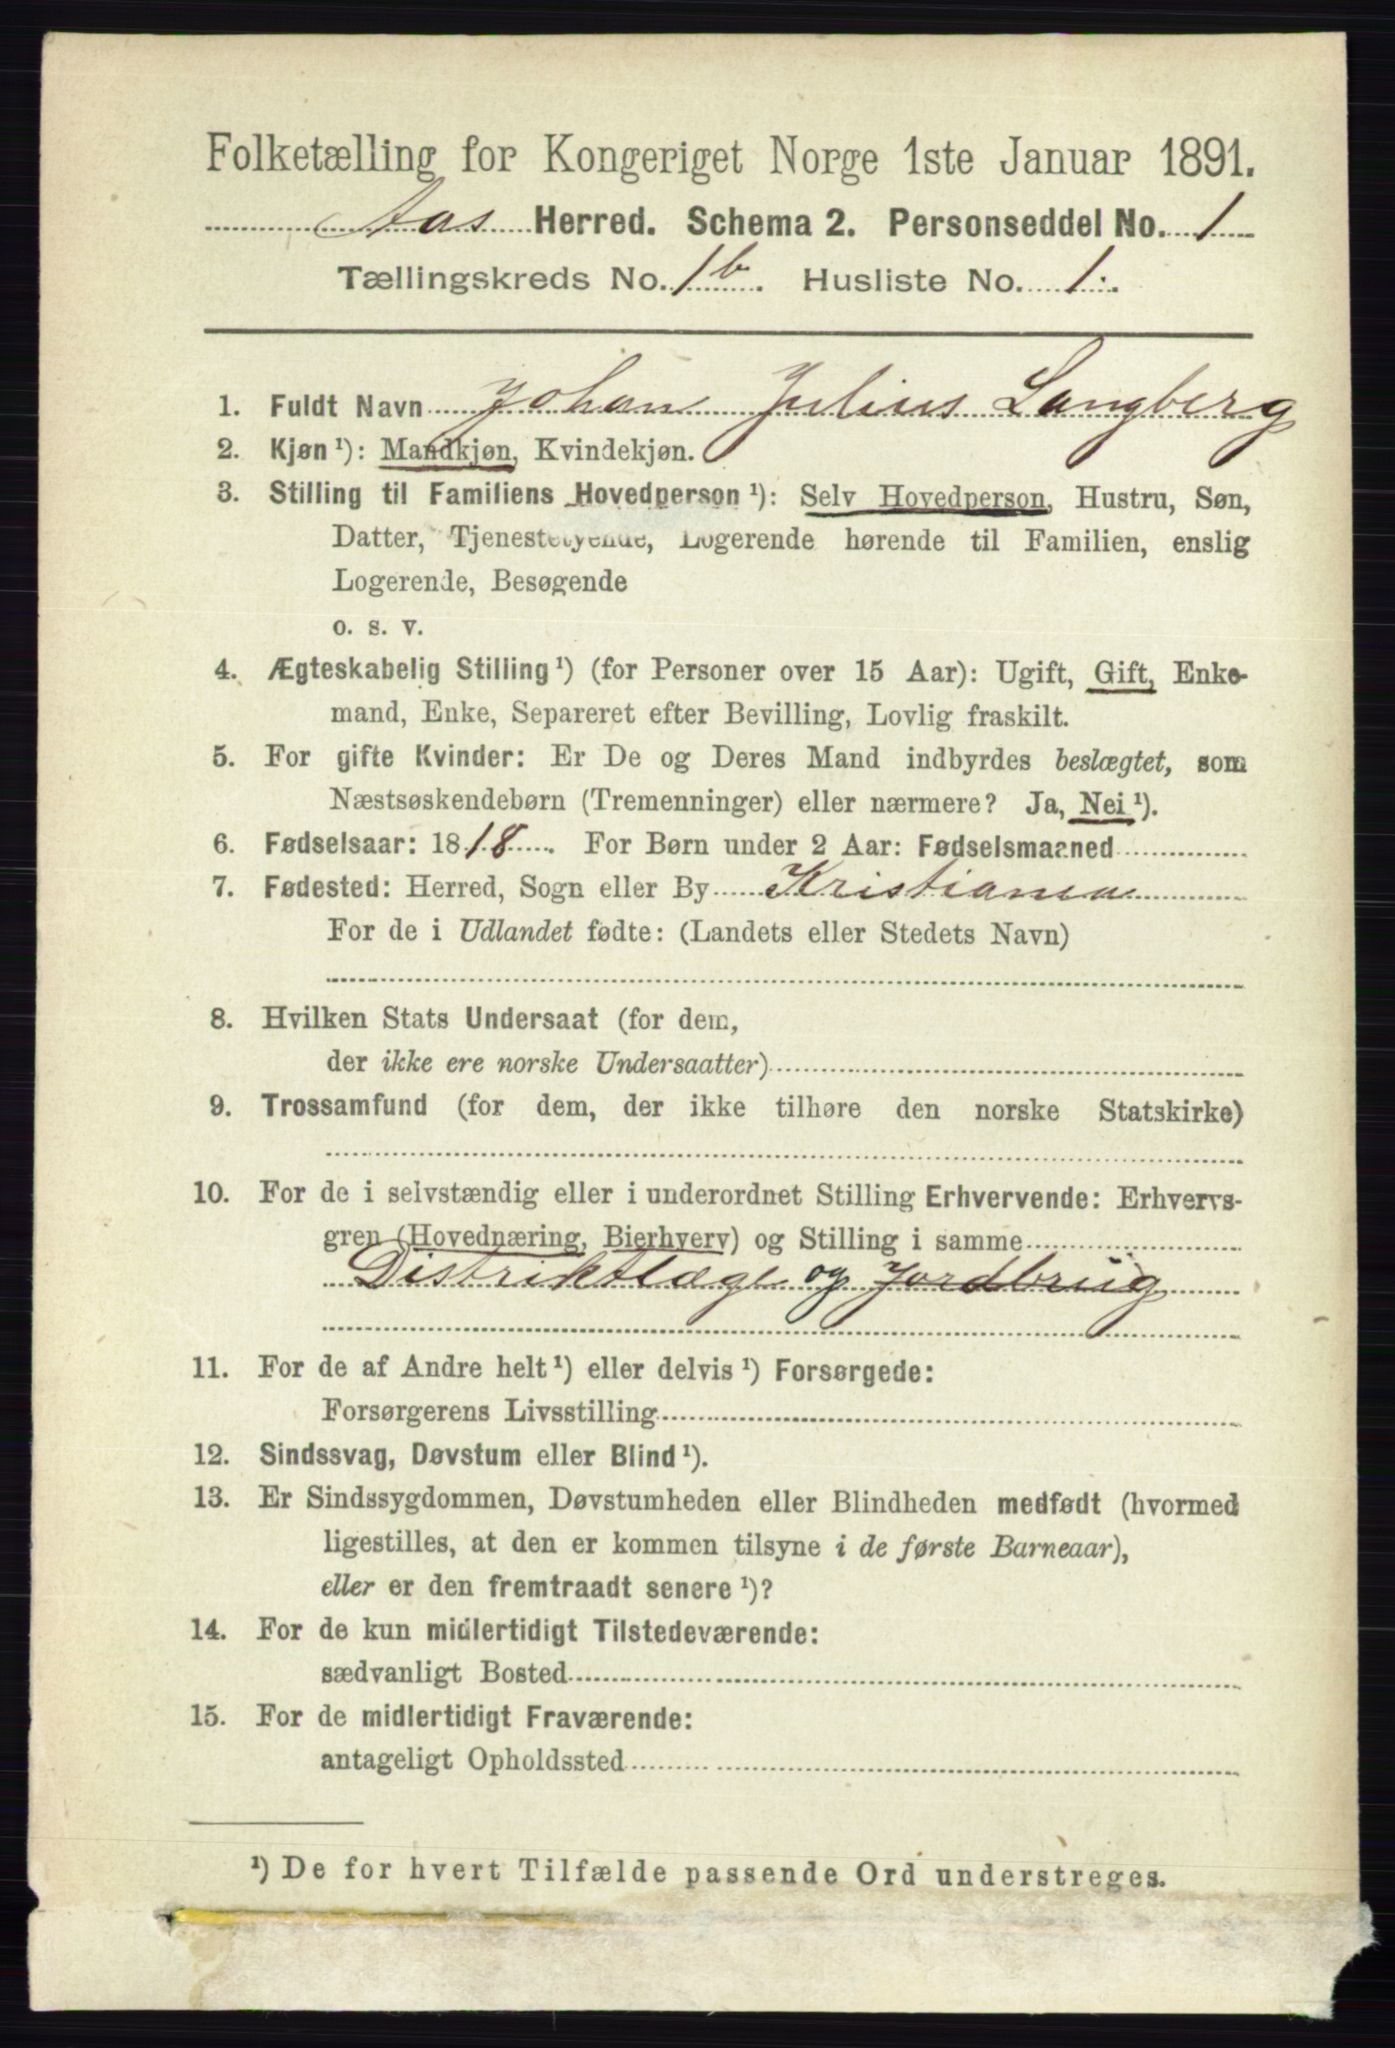 Folketælling for Kongeriget Norge 1ste Januar 1891.
Aas Herred. Schema 2. Personseddel No. 1
Tællingskreds No. 1b. Husliste No. 1.
1. Fuldt Navn Johan Julius Langberg
2. Kjøn ¹): Mandkjøn, Kvindekjøn.
3. Stilling til Familiens Hovedperson ¹): Selv Hovedperson, Hustru, Søn,
Datter, Tjenestetyende, Logerende hørende til Familien, enslig
Logerende, Besøgende
o. s. v.
4. Ægteskabelig Stilling ¹) (for Personer over 15 Aar): Ugift, Gift, Enke-
mand, Enke, Separeret efter Bevilling, Lovlig fraskilt.
5. For gifte Kvinder: Er De og Deres Mand indbyrdes beslægtet, som
Næstsøskendebørn (Tremenninger) eller nærmere? Ja, Nei ¹).
6. Fødselsaar: 1818. For Børn under 2 Aar: Fødselsmaaned
7. Fødested: Herred, Sogn eller By Kristiania
For de i Udlandet fødte: (Landets eller Stedets Navn)
8. Hvilken Stats Undersaat (for dem,
der ikke ere norske Undersaatter)
9. Trossamfund (for dem, der ikke tilhøre den norske Statskirke)
10. For de i selvstændig eller i underordnet Stilling Erhvervende: Erhvervs-
gren (Hovednæring, Bierhverv) og Stilling i samme
Distriktlæge og Jordbrug
11. For de af Andre helt ¹) eller delvis ¹) Forsørgede:
Forsørgerens Livsstilling
12. Sindssvag, Døvstum eller Blind ¹).
13. Er Sindssygdommen, Døvstumheden eller Blindheden medfødt (hvormed
ligestilles, at den er kommen tilsyne i de første Barneaar),
eller er den fremtraadt senere ¹)?
14. For de kun midlertidigt Tilstedeværende:
sædvanligt Bosted
15. For de midlertidigt Fraværende:
antageligt Opholdssted
¹) De for hvert Tilfælde passende Ord understreges.